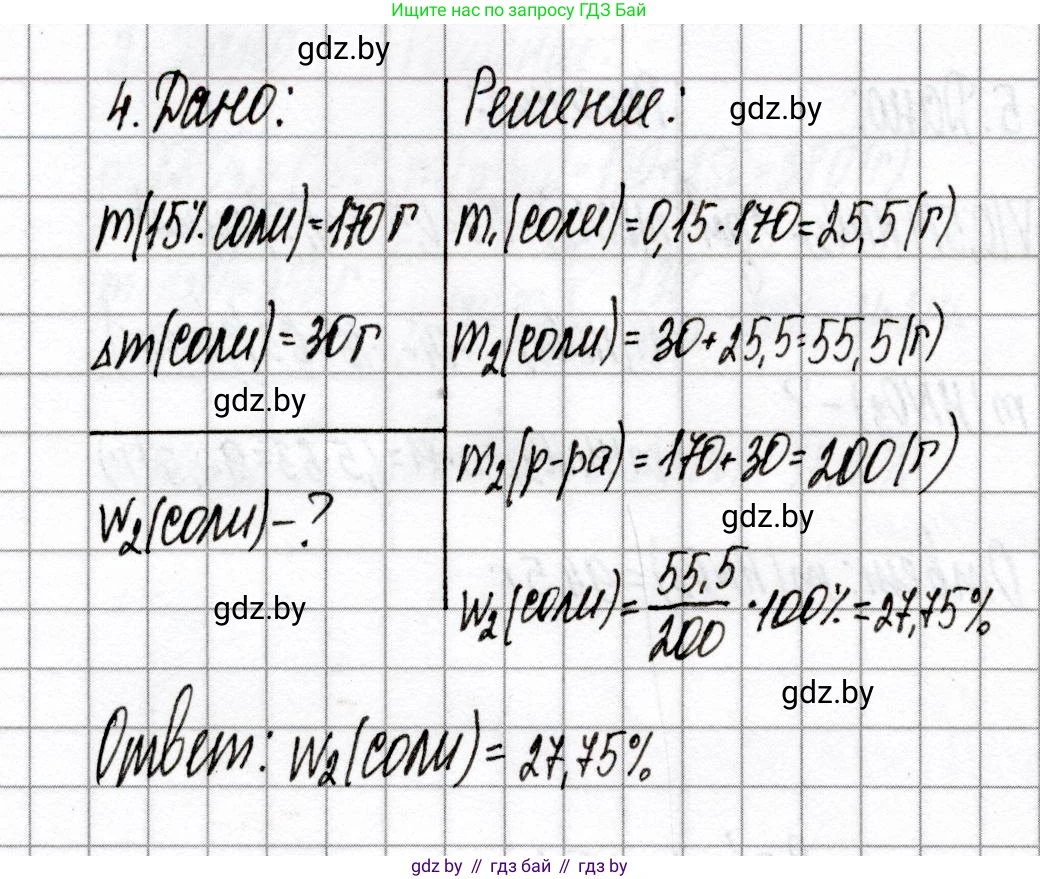 Ищите нас по запросу ГДЗ Бай
gdz.by
4. Дано:
Решение:
gdz.by
m(15% соли)=170 г
m₁(соли)=0,15·170=25,5(г)
Δm(соли)=30г
m₂(соли)= 30+25,5=55,5(г)
gdz.by
m₂(р-ра)=170+30=200(г)
w₂(соли)-?
gdz.by
w₂(соли)= 55,5/200 ·100%=27,75%
gdz.by
gdz.by
Ответ: w₂(соли)= 27,75%
gdz.by // гдз бай // гдз by